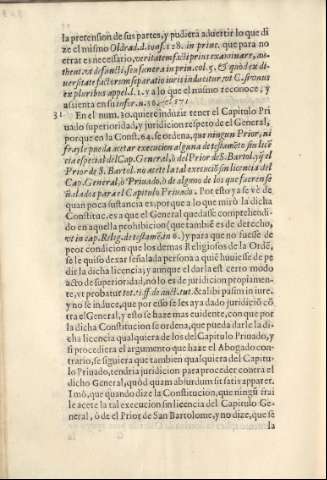 la pretension de sus partes, y pudiera aduertir lo que di
ze el mismo Oldrad. d. consf. 128. in princ. que para no
errar es necessario, veritatem facti prius examinare, au-
thent. ex defuncti, seu sonera in prin. col. 5. & quod ex di-
uersitate factorum separatio iuris inducitur, vt C. si vnus
ex pluribus appel. l. 1. y a lo que el mismo reconoce, y
assienta en su infor. n. 30. y el 571
31 En el num. 10. quiere induzir tener el Capitulo Pri
uado superioridad, y juridicion respeto de el General,
porque en la Const. 64. se ordena, que ningun Prior, ni
frayle pueda acetar execucion alguna de testamẽto sin licẽ
cia especial del Cap. General, ò del Prior de S. Bartol. y el
Prior de S. Bartol. no acete la tal execució sin licencia del
Cap. General, ò Priuado, ò de alguno de los que fueren se
ñalados para el Capitulo Priuado. Por esto ya se vè de
quan poca sustancia es, porque a lo que mirò la dicha
Constituc. es a que el General quedasse comprehendi-
do en aquella prohibicion (que tambiẽ es de derecho,
vt in cap. Relig. de testamẽt. in 6.) y para que no fuesse de
peor condicion que los demas Religiosos de la Ordẽ,
se le quiso dexar señalada persona a quiẽ huuiesse de pe
dir la dicha licencia; y aunque el darla est cierto modo
acto de superioridad, no lo es de juridicion propiamen-
te, vt probatur tot. tit. ff. de auct. tut. & alibi pasim in iure,
y no se induce, que por esso se les aya dado juridiciõ cõ
tra el General, y esto se haze mas euidente, con que por
la dicha Constitucion se ordena, que pueda darle la di-
cha licencia qualquiera de los del Capitulo Priuado, y
si procediera el argumento que haze el Abogado con-
trario, se siguiera que tambien qualquiera del Capitu-
lo Priuado, tendria juridicion para proceder contra el
dicho General, quòd quam absurdum sit satis apparet.
Imò, que quando dize la Constitucion, que ningũ frai
le acete la tal execucion sin licencia del Capitulo Ge-
neral, ò de el Prior de San Bartolome, y no dize, que se
la